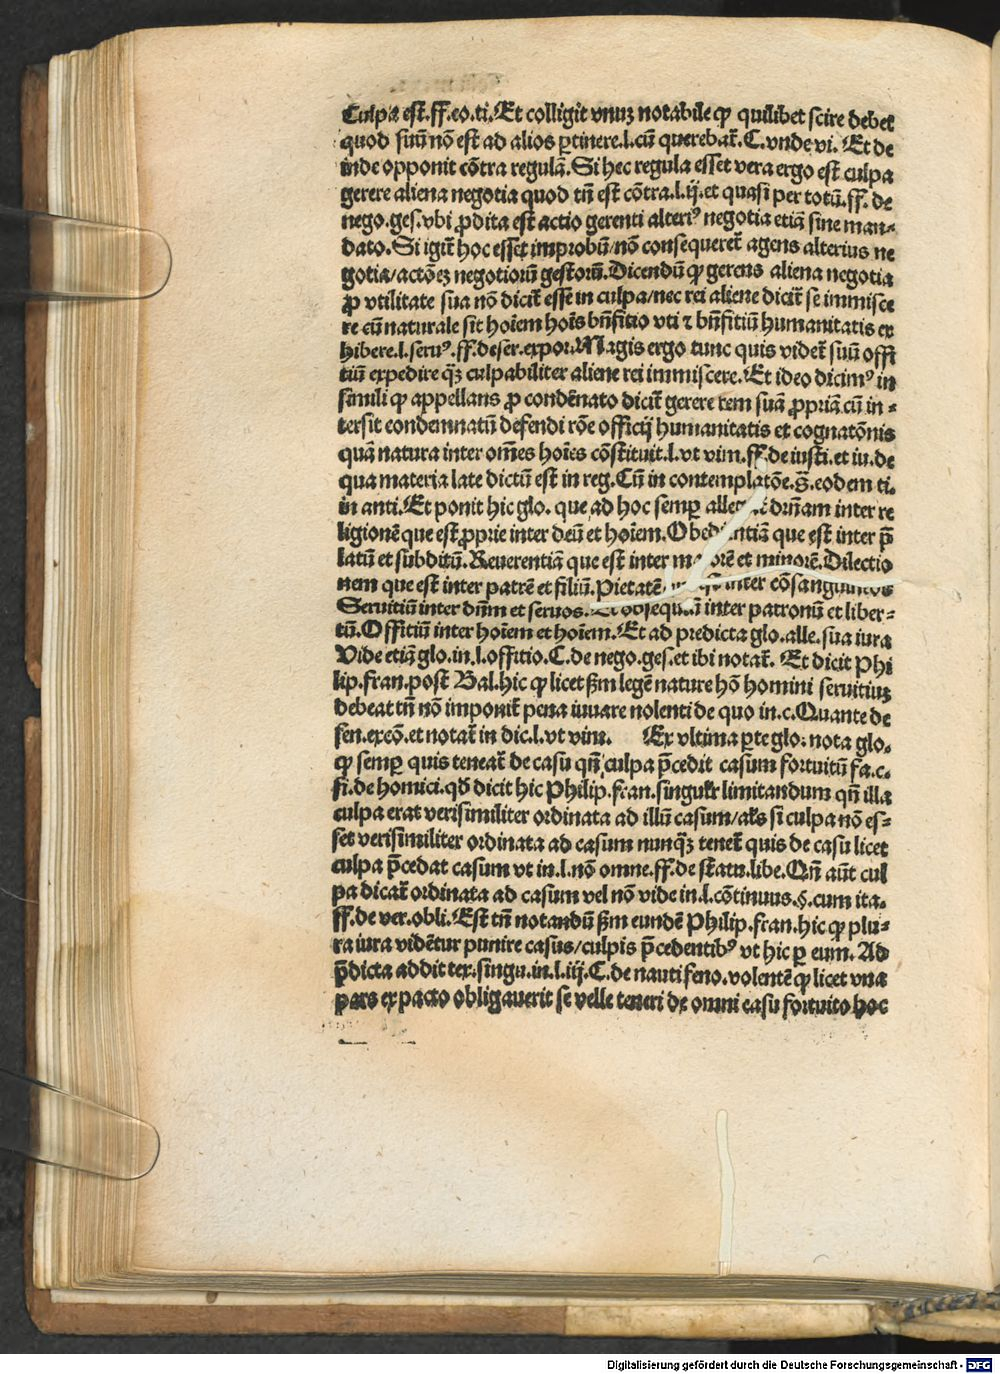 Culpa est.ff.eo.ti.Et colligit vnuꝫ notabile ꝙ quilibet scire debet
quod suū nō est ad alios ꝑtinere.l.cū querebat̄.C.vnde vi. Et de
inde opponit cōtra regulā.Si hec regula esset vera ergo est culpa
gerere aliena negotia quod tn̄ est cōtra.l.ij.et quasi per totū.ff.de
nego.ges.vbi ꝓdita est actio gerenti alteriꝰ negotia etiā sine man⸗
dato.Si igit̄ hoc esset improbū/nō consequeret̄ agens alterius ne
gotia/actōeꝫ negotiorū gestorū.Dicendū ꝙ gerens aliena negotia
ꝓ vtilitate sua nō dicit̄ esse in culpa/nec rei aliene dicit̄ se immisce
re cū naturale sit hoīem hoīs bn̄fitio vti ⁊ bn̄fitiū humanitatis ex
hibere.l.seruꝰ.ff.de ser.expor.Magis ergo tunc quis videt̄ suū offi
tiū expedire q̄ꝫ culpabiliter aliene rei immiscere.Et ideo dicimꝰ in
simili ꝙ appellans ꝓ condēnato dicit̄ gerere rem suā ꝓpriā cū in⸗
tersit condemnatū defendi rōe officij humanitatis et cognatōnis
quā natura inter om̄es hoīes cōstituit.l.vt vim.ff.de iusti.et iu.de
qua materia late dictū est in reg.Cū in contemplatōe.S̄.eodem ti.
in anti.Et ponit hic glo. que ad hoc semꝑ allegat̄ drn̄am inter re
ligionē que est ꝓprie inter deū et hoīem.Obedientiā que est inter p̄
latū et subditū.Reuerentiā que est inter maiorē et minorē.Dilectio
nem que est inter patrē et filiū.Pietatē inter cōsanguineos
Seruitiū inter dn̄m et seruos. Et obsequiū inter patronū et liber⸗
tū.Offitiū inter hoīem et hoīem.Et ad predicta glo.alle.sua iura
Vide etiā glo.in.l.offitio.C.de nego.ges.et ibi notat̄. Et dicit Phi
lip.fran.post Bal.hic ꝙ licet ẜm legē nature hō homini seruitiuꝫ
debeat tn̄ nō imponit̄ pena iuuare nolenti de quo in.c.Quante de
sen.excō.et notat̄ in dic.l.vt vim. Ex vltima ꝑte glo. nota glo.
ꝙ semꝑ quis teneat̄ de casu qn̄ culpa p̄cedit casum fortuitū fa.c.
fi.de homici.qđ dicit hic Philip.fran.singulr limitandum qn̄ illa
culpa erat verisimiliter ordinata ad illū casum/als si culpa nō es⸗
set verisimiliter ordinata ad casum nunq̄ꝫ tenet̄ quis de casu licet
culpa p̄cedat casum vt in.l.nō omne.ff.de statu.libe.Qn̄ aūt cul
pa dicat̄ ordinata ad casum vel nō vide in.l.cōtinuus.§.cum ita.
ff.de ver.obli.Est tn̄ notandū ẜm eundē Philip.fran.hic ꝙ plu⸗
ra iura vidētur punire casus/culpis p̄cedentibꝰ vt hic ꝑ eum. Ad
p̄dicta addit tex.singu.in.l.iij.C.de nauti feno.volentē ꝙ licet vna
pars ex pacto obligauerit se velle teneri de omni casu fortuito hoc
Digitalisierung gefördert durch die Deutsche Forschungsgemeinschaft - DFG